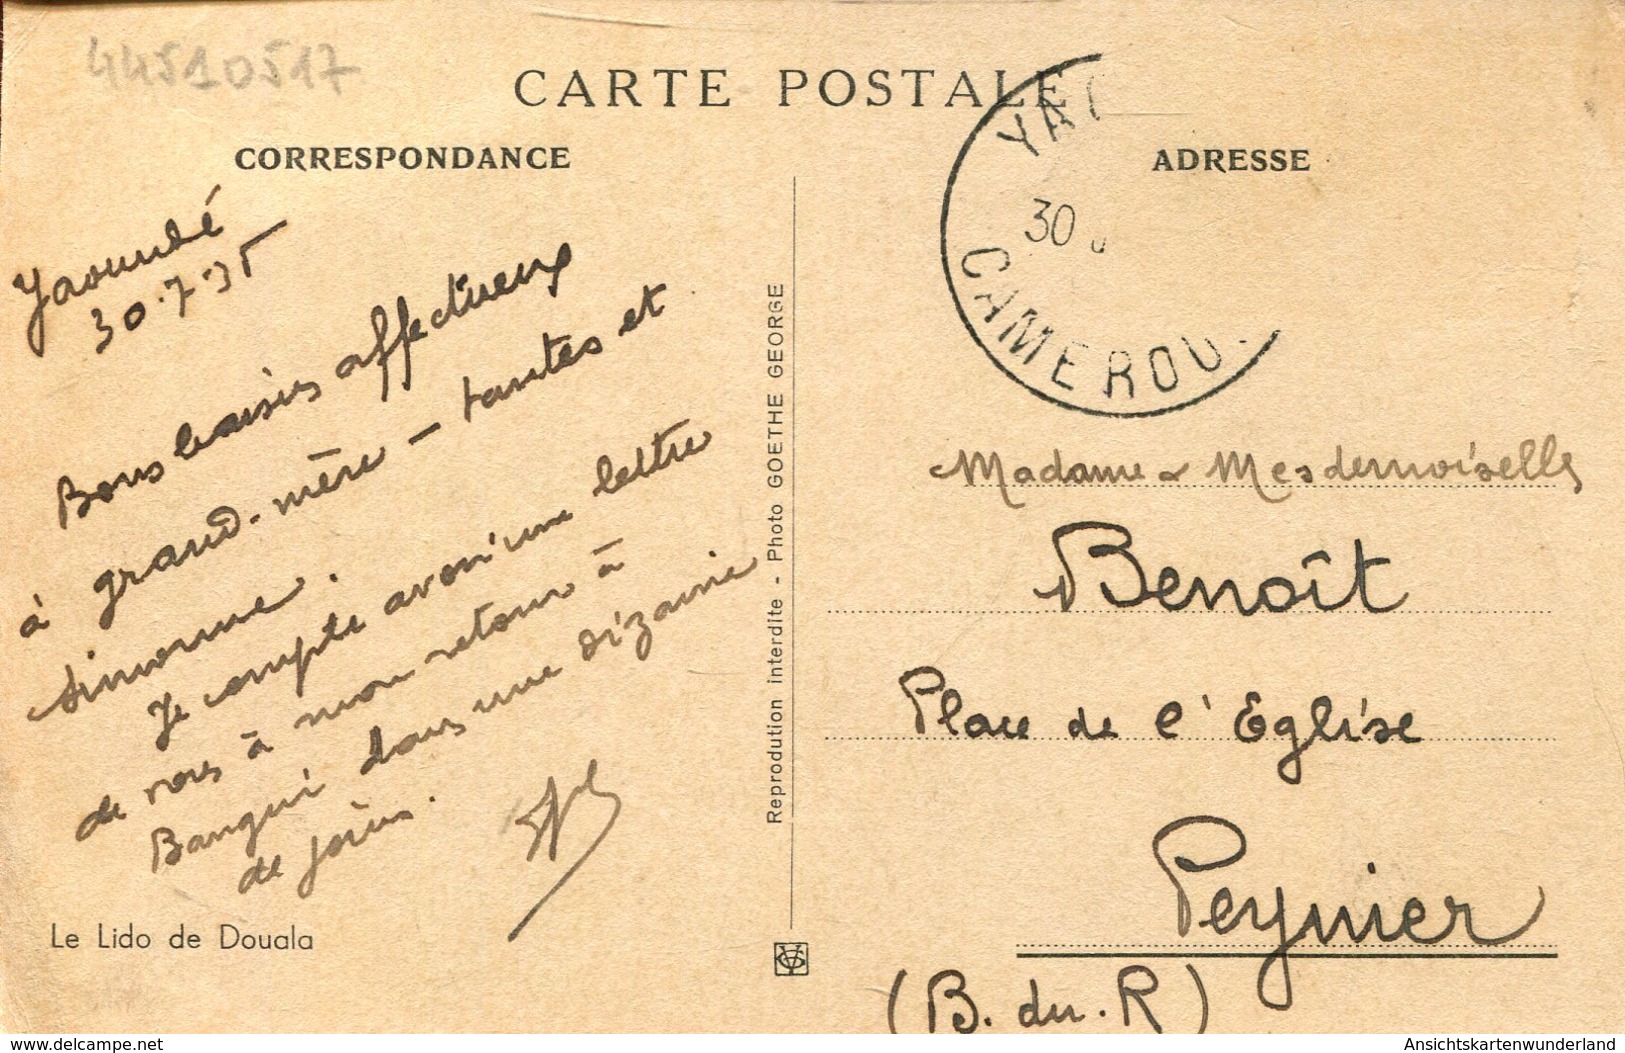 44510517
CARTE POSTALE
CORRESPONDANCE
ADRESSE
Yaoundé
30.7.35
Bons baisers affectueux
à grand-mère - tantes et
Simonne.
Je compte avoir une lettre
de vous à mon retour à
Bangui dans une dizaine
de jours.
Le Lido de Douala
Reprodution interdite - Photo GOETHE GEORGE
YAO
30
CAMEROU
Madame & Mesdemoiselles
Benoît
Place de l'Eglise
Peynier
(B. du. R)
www.delcampe.net
Ansichtskartenwunderland